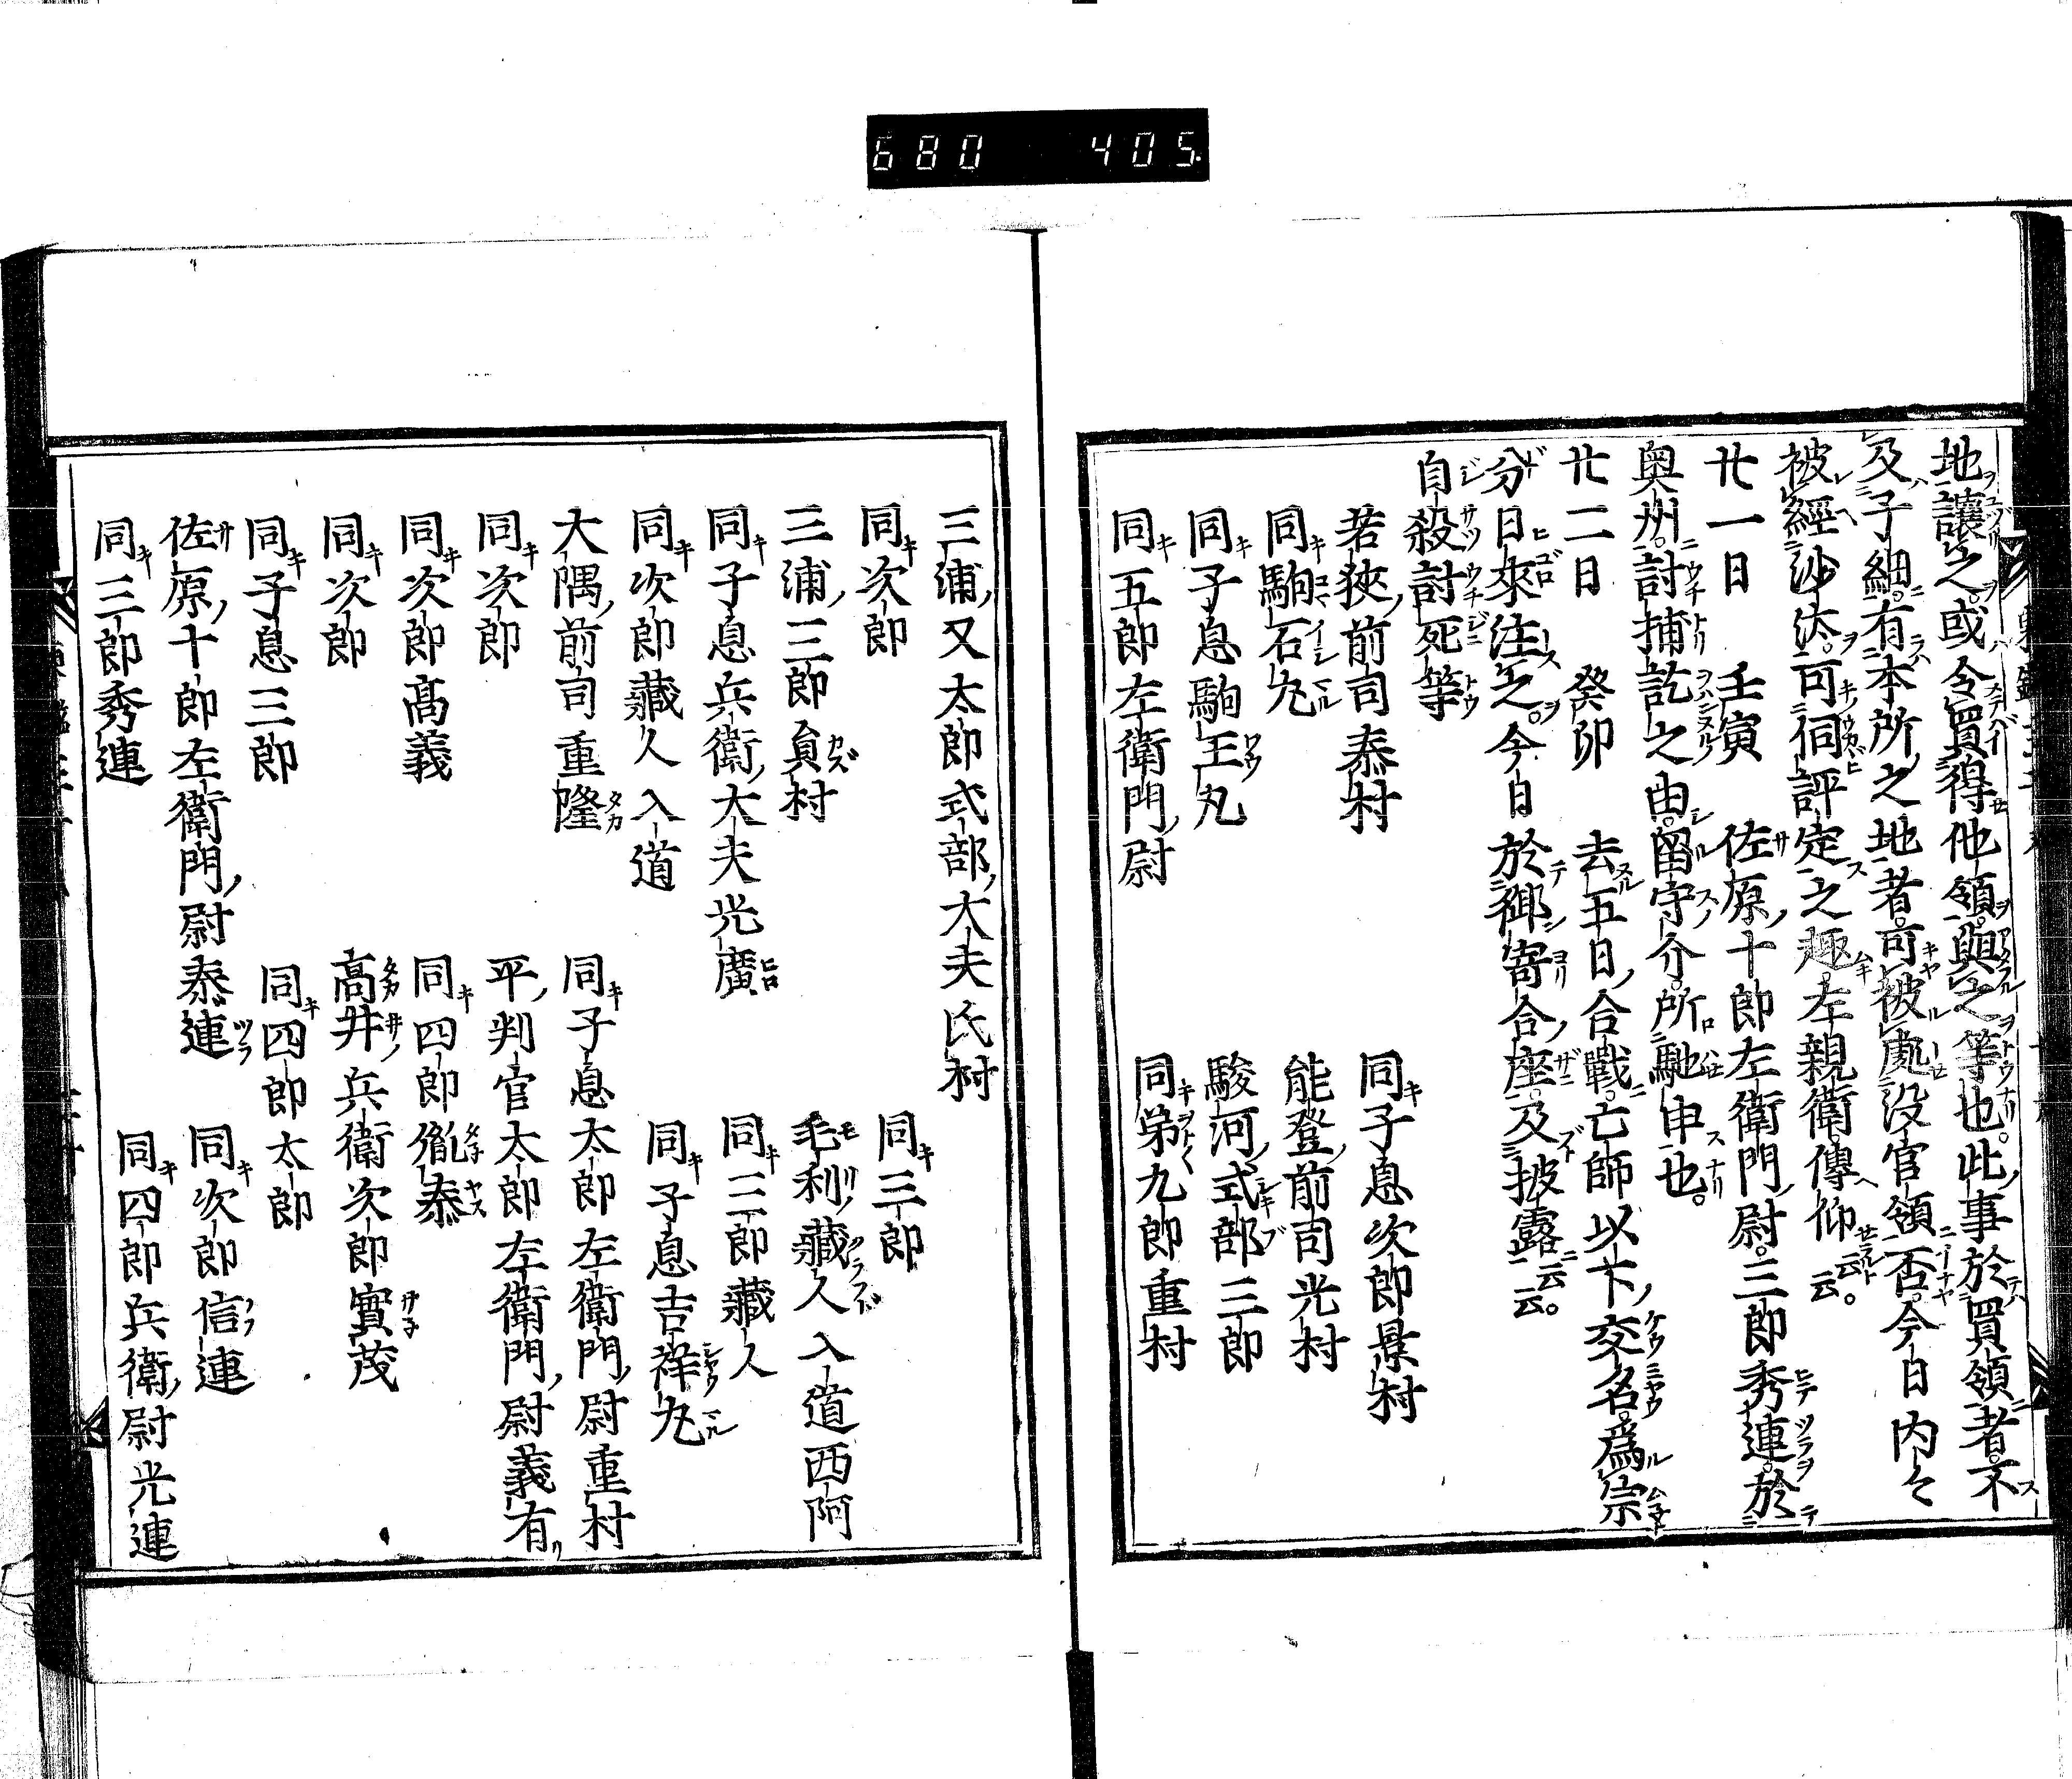 680 405
地讓之。或令買得他領。與之等也。此事於買領者。不
及子細。有本所之地者。可被處没官領否。今日内々
被經沙汰。可伺評定之趣。左親衛傳仰云云。
廿一日 壬寅 佐原十郎左衛門尉。三郎秀連。於
奥州。討捕訖之由。留守介。所馳申也。
廿二日 癸卯 去五日合戰。亡師以下交名。爲宗
分日來注之。今日於御寄合座。及披露云云。
自殺討死等
若狹前司泰村 同子息次郎景村
同駒石丸 能登前司光村
同子息駒王丸 駿河式部三郎
同五郎左衛門尉 同弟九郎重村
三浦又太郎式部大夫氏村
同次郎 同三郎
三浦三郎員村 毛利藏人入道西阿
同子息兵衛大夫光廣 同三郎藏人
同次郎藏人入道 同子息吉祥丸
大隅前司重隆 同子息太郎左衛門尉重村
同次郎 平判官太郎左衛門尉義有
同次郎高義 同四郎胤泰
同次郎 高井兵衛次郎實茂
同子息三郎 同四郎太郎
佐原十郎左衛門尉泰連 同次郎信連
同三郎秀連 同四郎兵衛尉光連